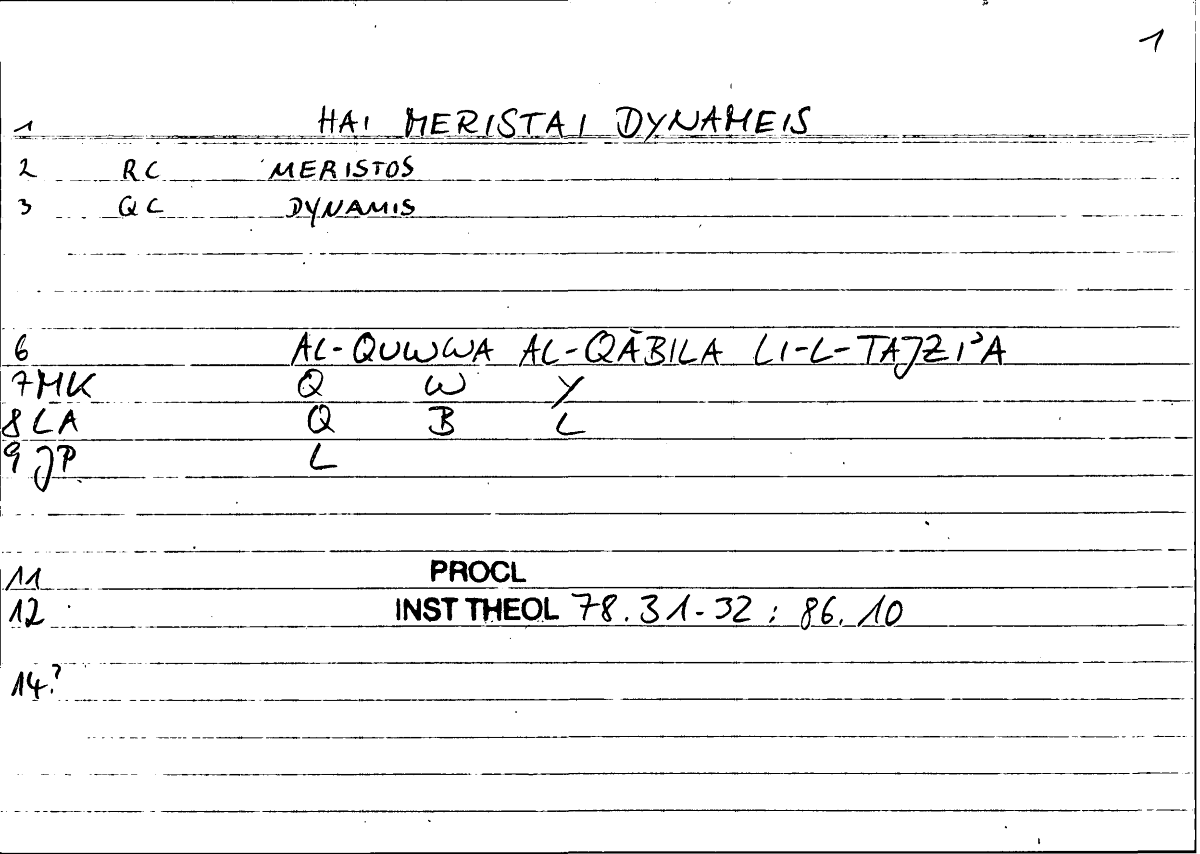 1
1 HAI MERISTAI DYNAMEIS
2 RC MERISTOS
3 QC DYNAMIS
6 AL-QUWWA AL-QĀBILA LI-L-TAJZIʾA
7 MK Q W Y
8 LA Q B L
9 JP L
11 PROCL
12 INST THEOL 78.31-32 : 86.10
14?